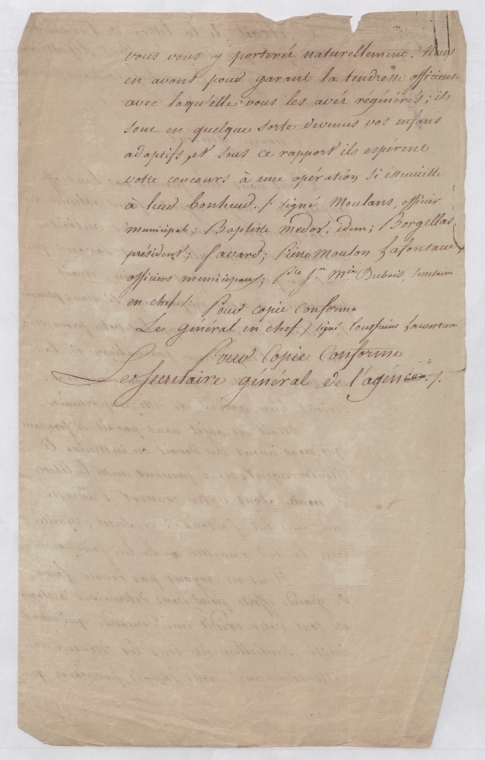 vous vous y porterez naturellement. Nous
en avons pour garant la tendresse officieuse
avec laquelle vous les avez régénérés; ils
sont en quelque sorte devenus vos enfans
adoptifs, et sous ce rapport ils espèrent
votre concours à une opération si essentielle
à leur bonheur. / signé Moulans, officier
municipal; Baptiste Medor, idem; Borgellas
président; Gavard; Moulon Lafontaine
officiers municipaux; Dubois, secrétaire
en chef.
Pour copie conforme
Le général en chef / signé Toussaint Louverture
Pour Copie Conforme
Le Secrétaire général de l'agence ./.